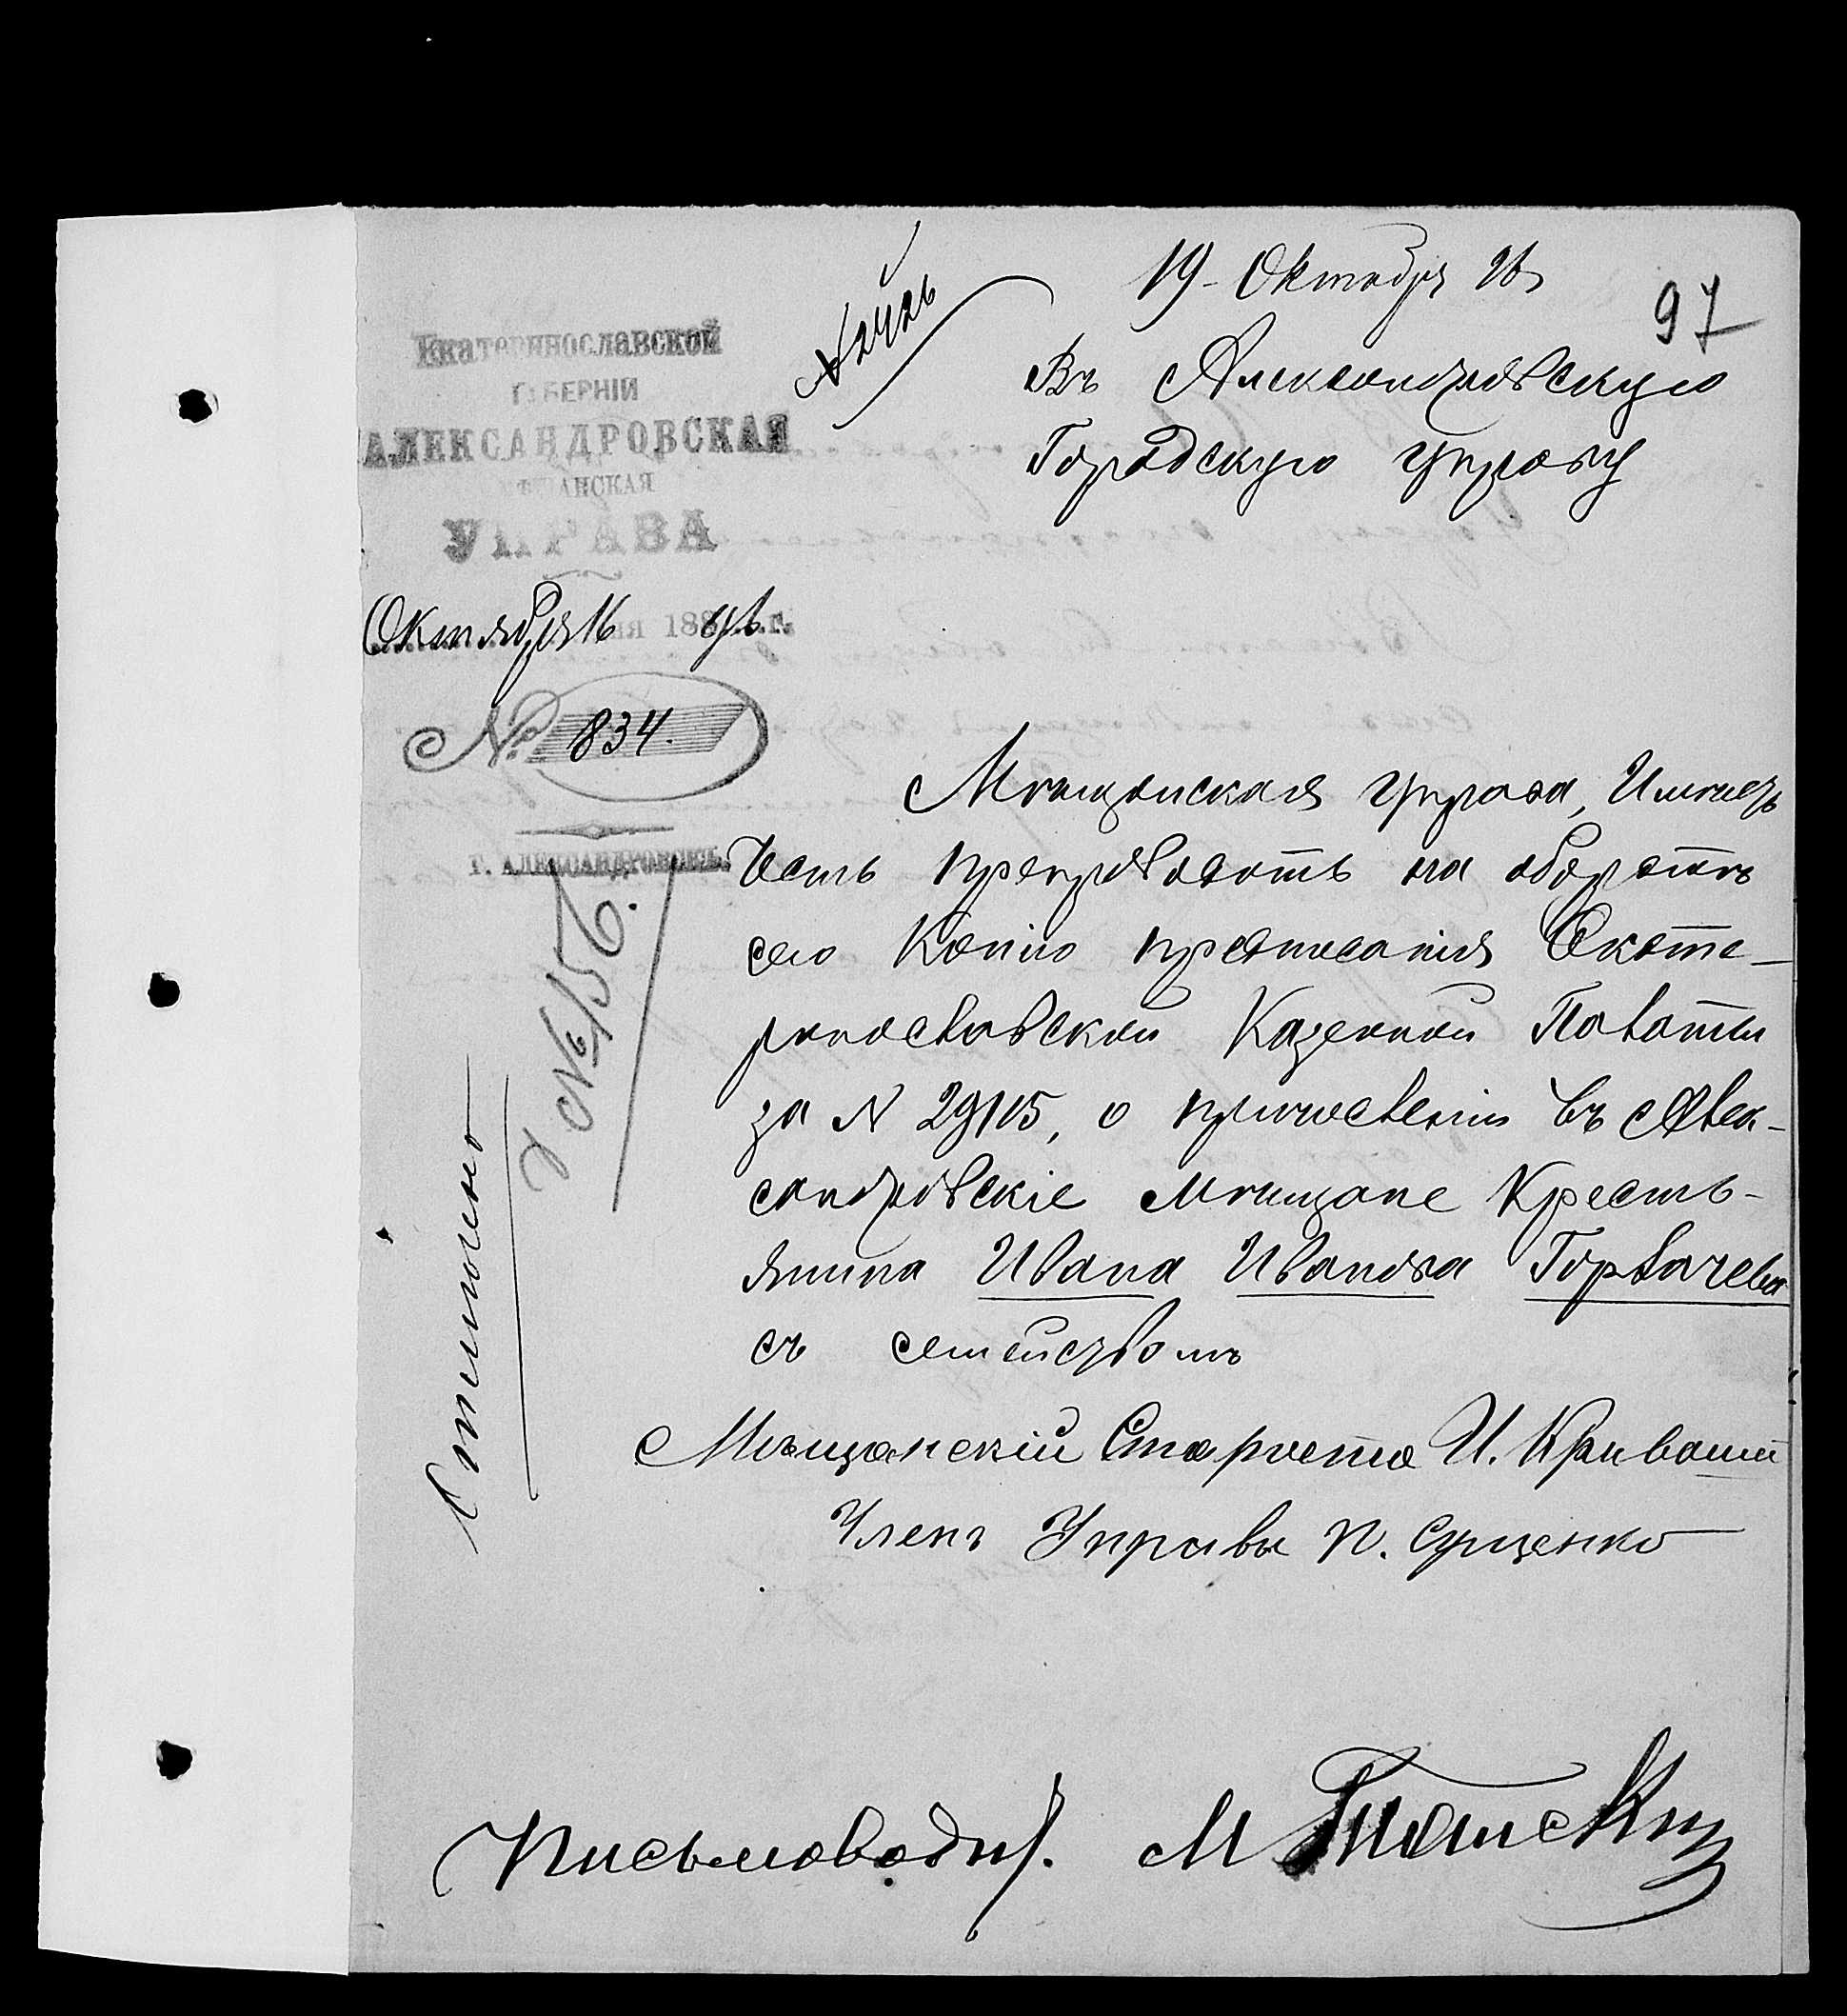 19 Октября 96
97
№ 2426
Екатеринославской
ГУБЕРНІИ
АЛЕКСАНДРОВСКАЯ
МѢЩАНСКАЯ
УПРАВА
Октября 16 дня 1896 г.
№ 834.
г. АЛЕКСАНДРОВСКЪ.
Въ Александровскую
Городскую Управу
Мѣщанская Управа, Имѣетъ
честь препровождать на оборотѣ
сего Копію предписанія Екате-
ринославской Казенной Палаты
за N 29115, о причисленіи въ Алек-
сандровскіе Мѣщане Кресть-
янина Ивана Иванова Горбачева
съ семействомъ
Мѣщанскій Староста И.
Членъ Управы П. Сущенко
Письмоводит. М
К №156.